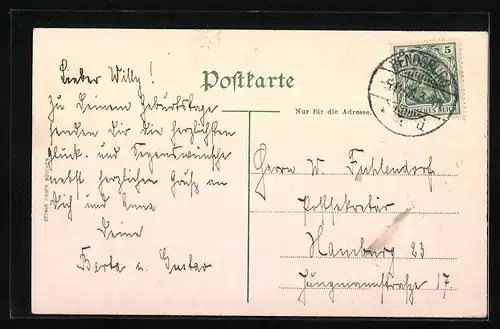 Lieber Willy!
Zu Deinem Geburtstage
senden Dir die herzlichsten
Glück- und Segenswünsche
nebst herzlichen Gruß an
Dich und Anna
Deine
Berta u. Gustav
Postkarte
Nur für die Adresse.
RENDSBURG
5
DEUTSCHES REICH
Herrn W. Fuhlendorf
Postsekretär
Hamburg 23
Jungmannstraße 17.
OTTMAR ZIEHER, MÜNCHEN